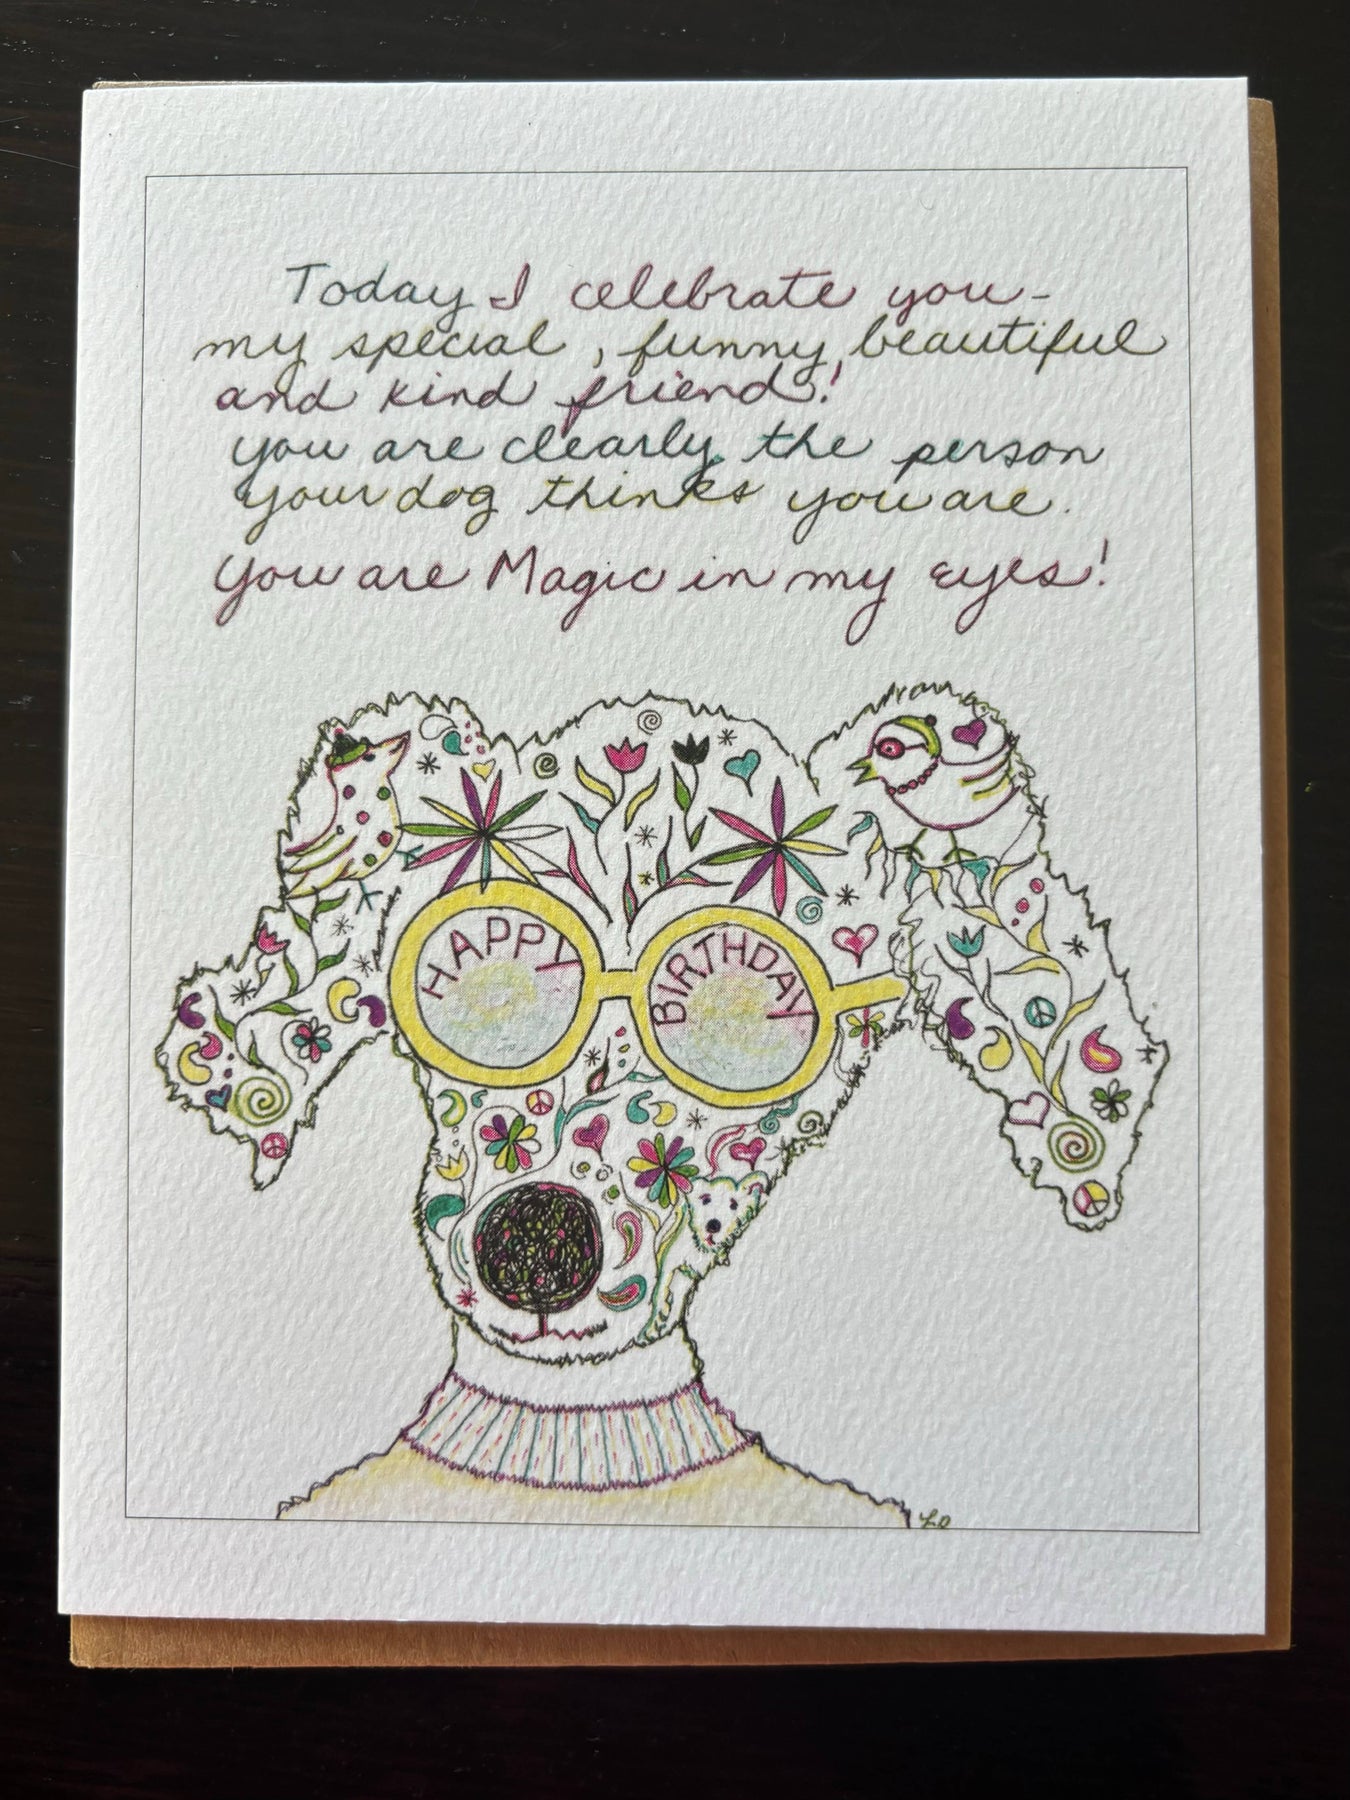 Today I celebrate you -
my special, funny, beautiful
and kind friend!
you are clearly the person
your dog thinks you are.
You are Magic in my eyes!
HAPPY
BIRTHDAY
LO